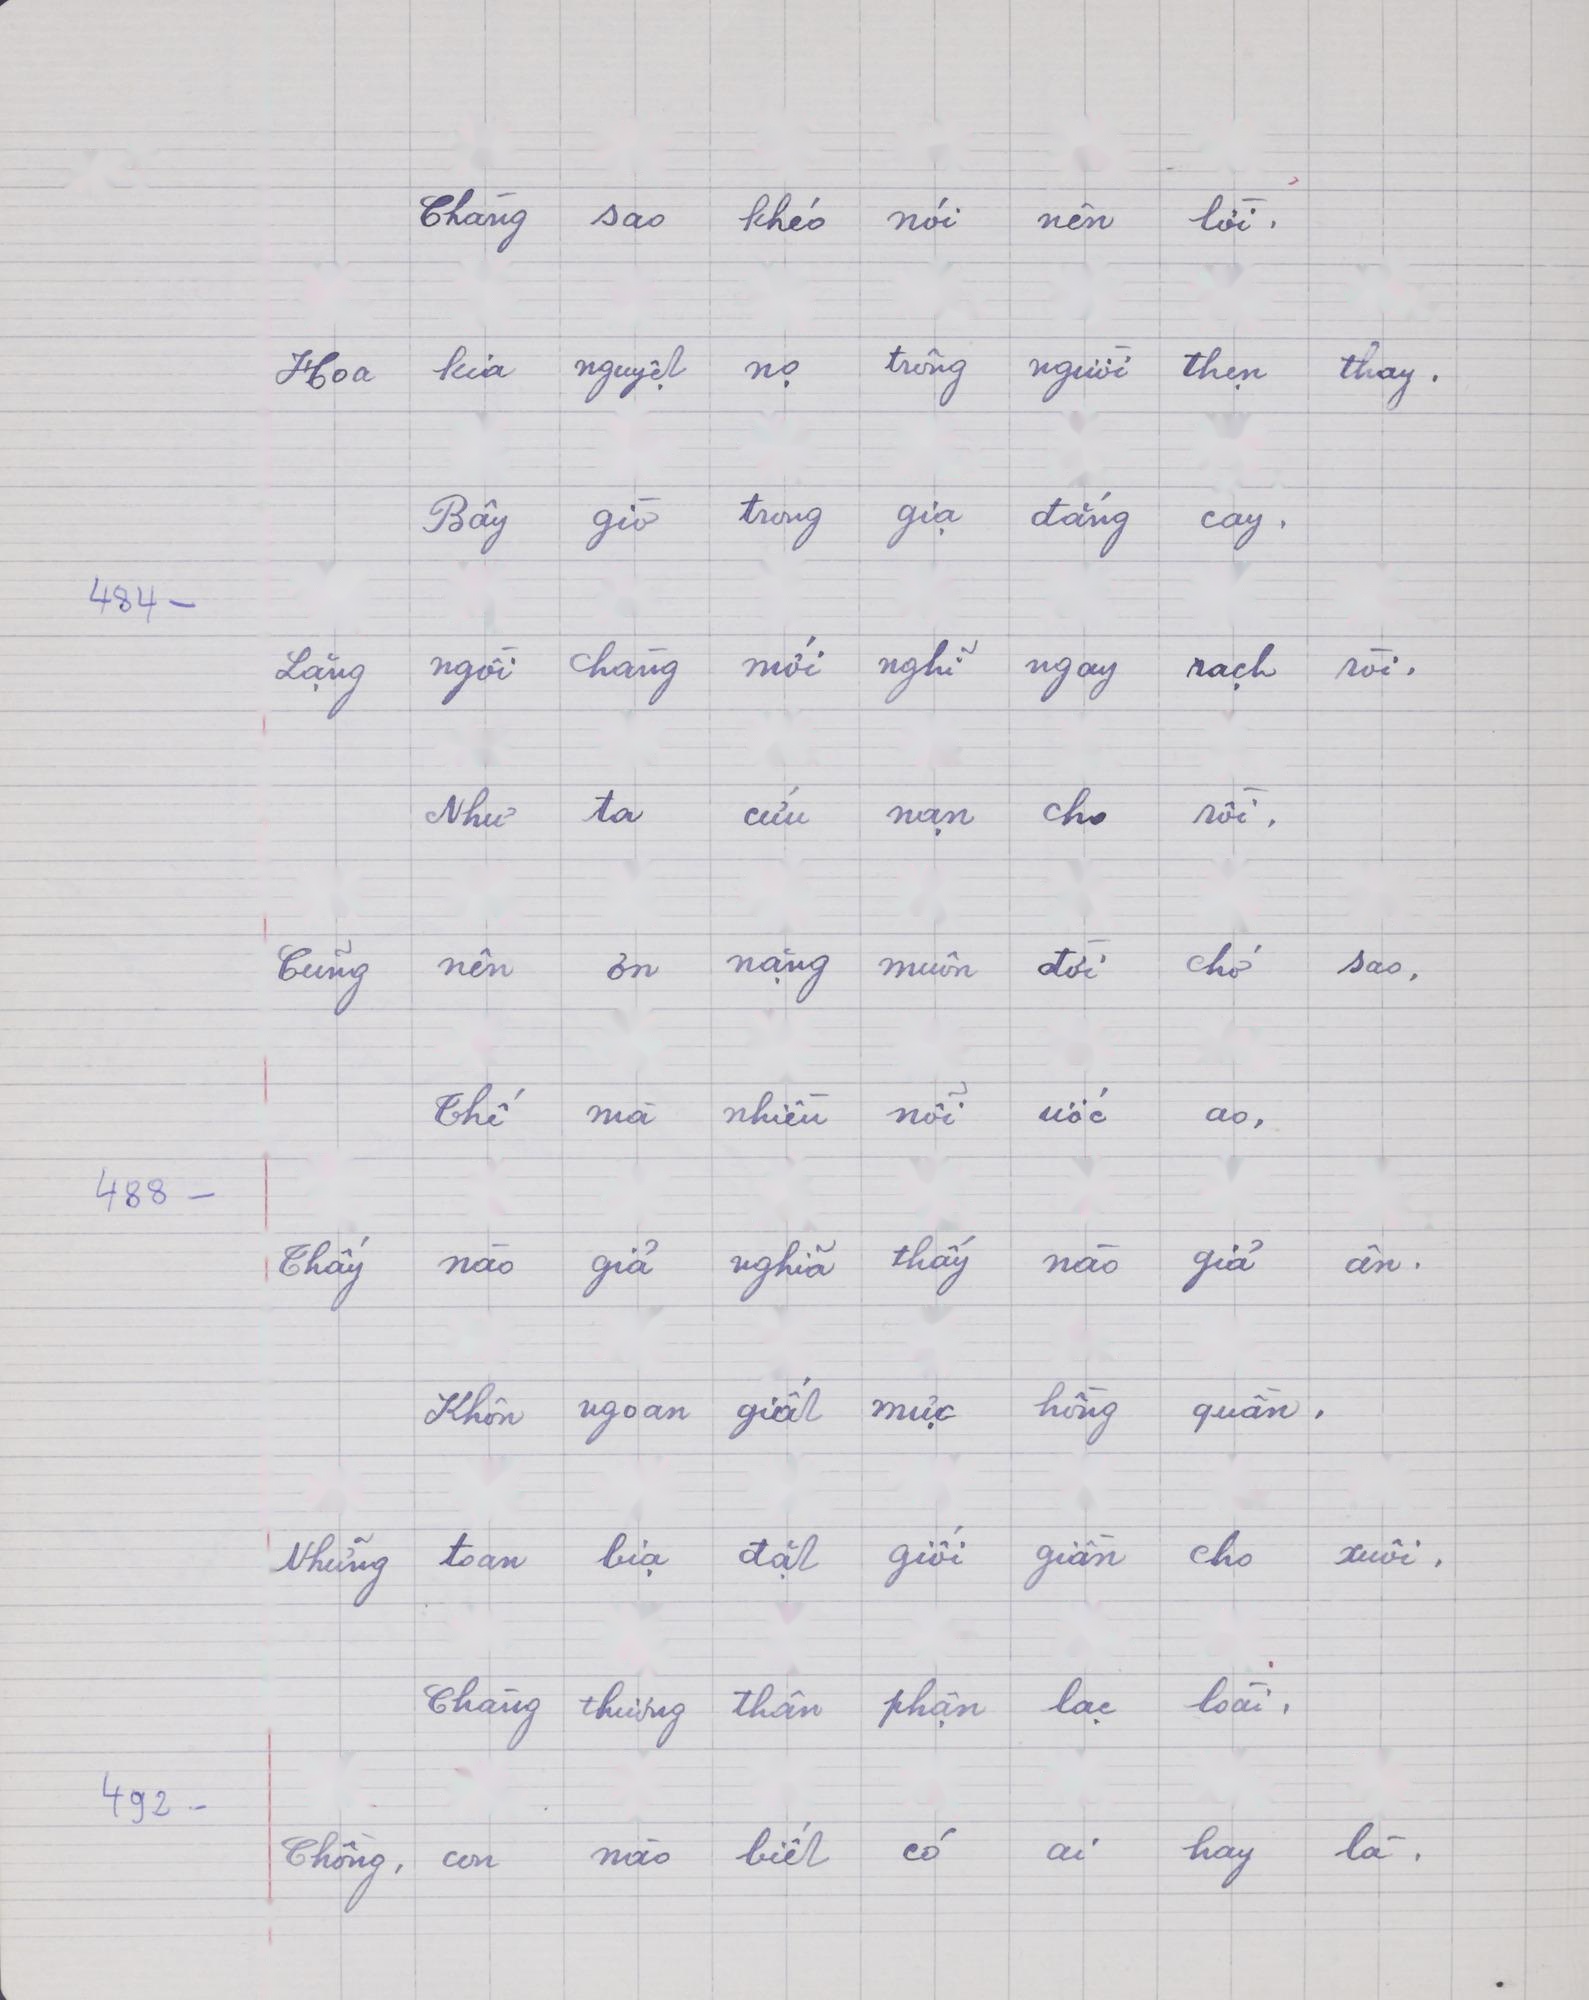 Chàng sao khéo nói nên lời.
Hoa kia nguyệt nọ trông người thẹn thay.
Bây giờ trong giạ đắng cay.
484 –
Lặng ngồi chàng mới nghĩ ngay rạch ròi.
Như ta cứu nạn cho rồi.
Cũng nên ơn nặng muôn đời chớ sao,
Thế mà nhiều nỗi ước ao,
488 –
Thấy nào giả nghĩa thấy nào giả ân.
Khôn ngoan giất mực hồng quần.
Những toan bịa đặt giối giăn cho xuôi.
Chàng thương thân phận lạc loài.
492 –
Chồng, con nào biết có ai hay là.